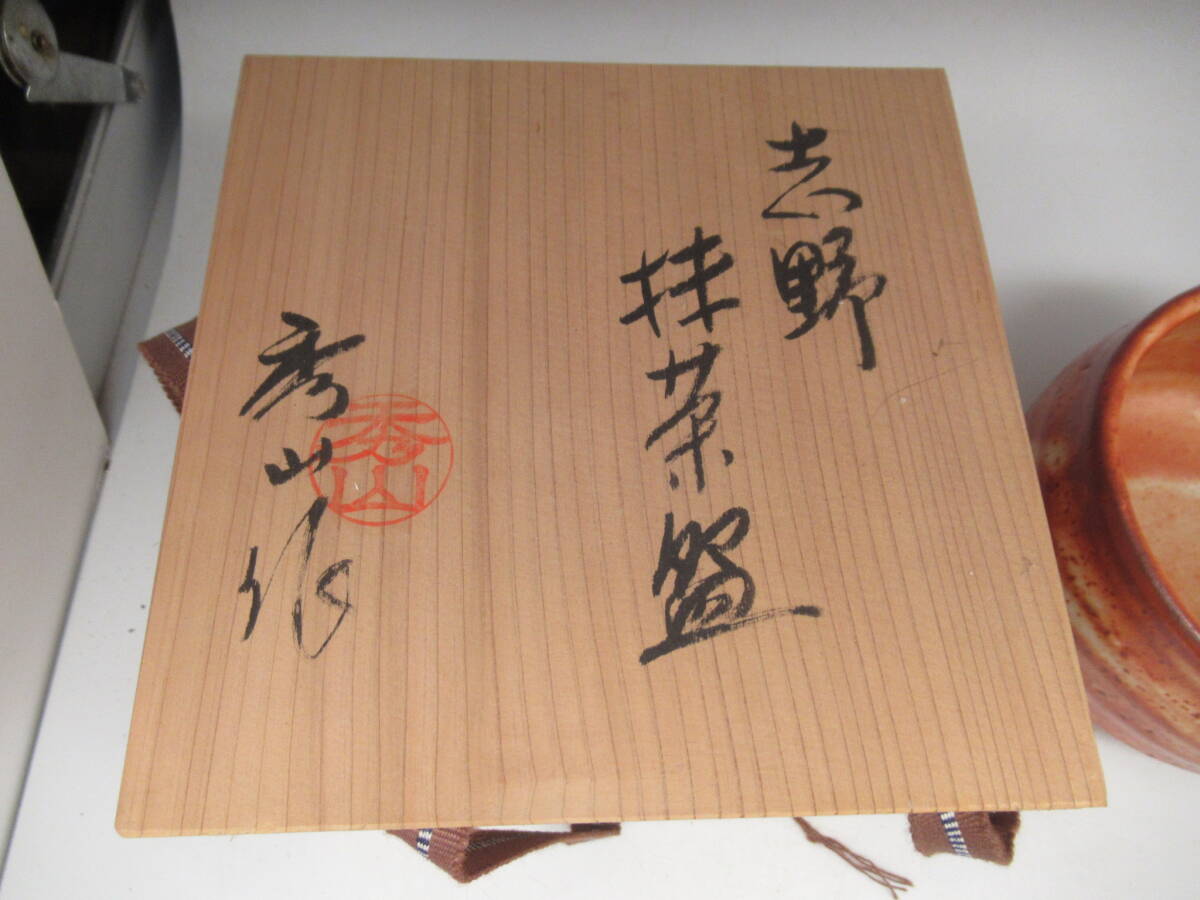 志野
抹茶盌
秀山作
秀山